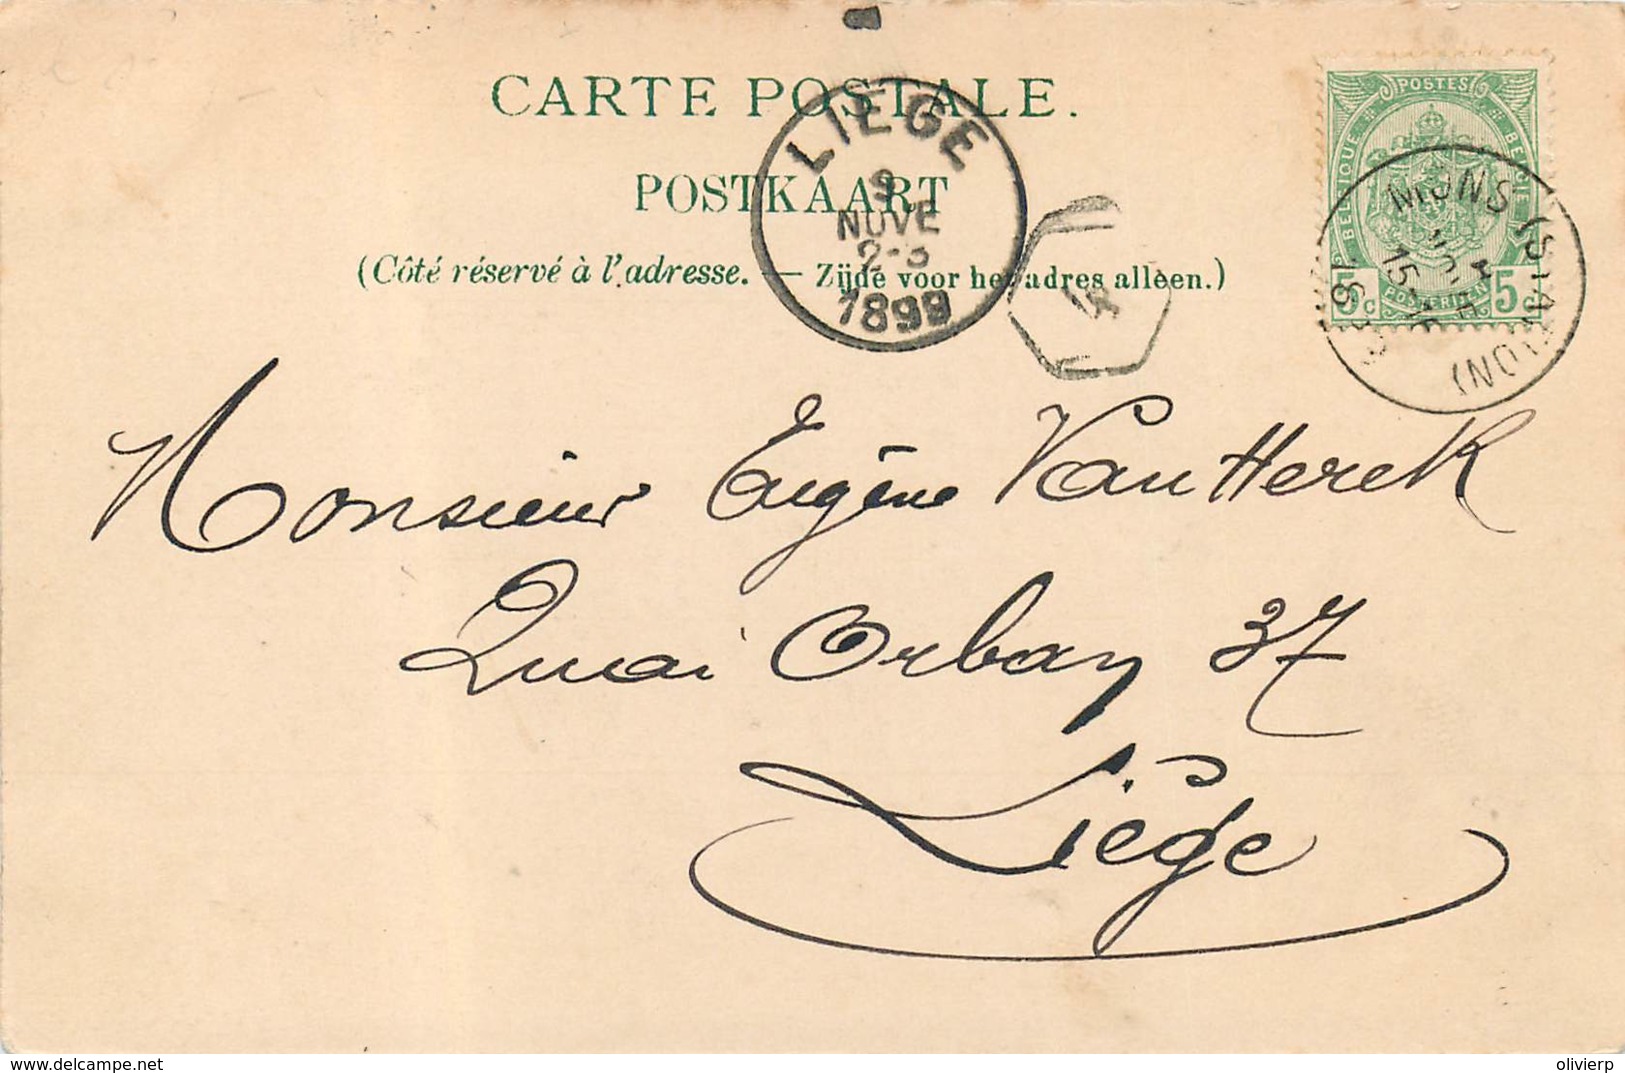 CARTE POSTALE.
POSTKAART
(Côté réservé à l'adresse. — Zijde voor het adres alleen.)
LIEGE
9
NOVE
2-3
1899
POSTES
BELGIQUE
BELGIE
POSTERIJEN
5c
5c
MONS (STATION)
15-16
Monsieur Eugène Van Herck
Quai Orban 37
Liège
olivierp